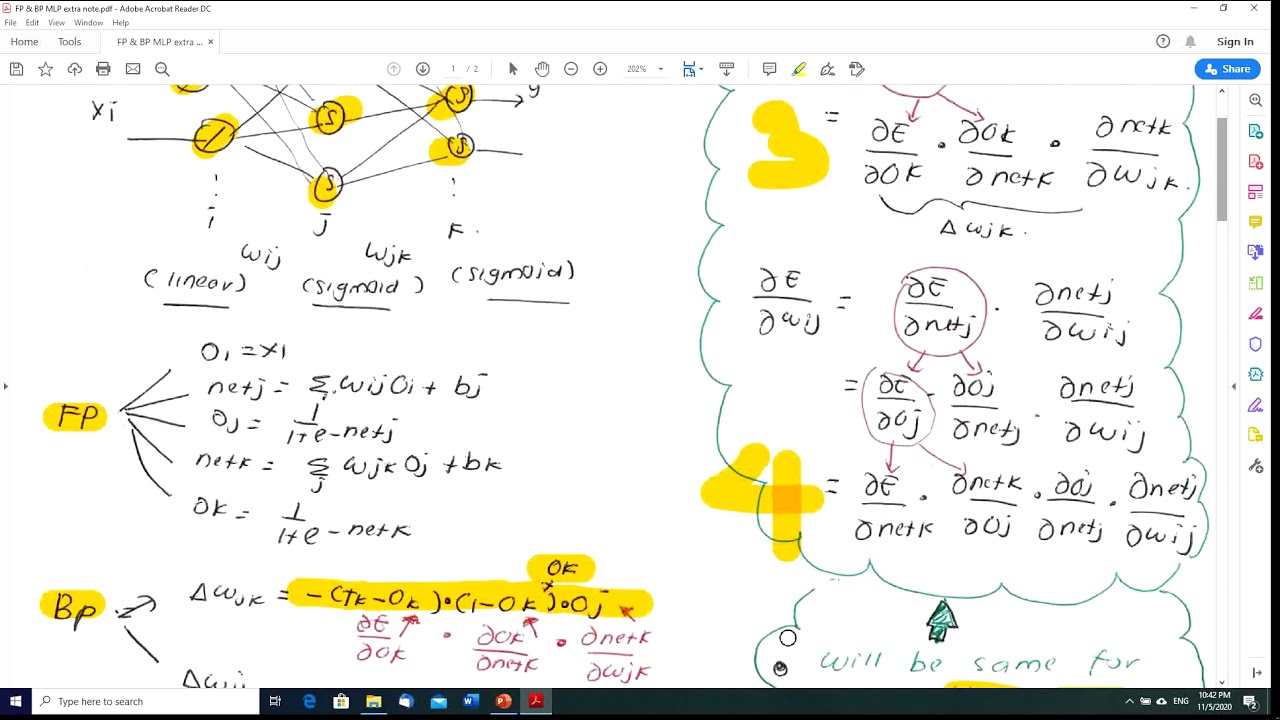 FP & BP MLP extra note.pdf - Adobe Acrobat Reader DC
File Edit View Window Help
Home Tools FP & BP MLP extra ... × Sign In
1 / 2 202% Share
xi
y
s
s
s
s
i j k
wij wjk
(linear) (sigmoid) (sigmoid)
FP
Oi = xi
netj = Σi wij Oi + bj
Oj = 1/1+e-netj
netk = Σj wjk Oj + bk
Ok = 1/1+e-netk
BP
Ok
Δwjk = -(tk-Ok)•(1-Ok)•Oj
∂E/∂Ok • ∂Ok/∂netk • ∂netk/∂wjk
Δwij
3
= ∂E/∂Ok • ∂Ok/∂netk • ∂netk/∂wjk.
Δwjk.
∂E/∂wij = ∂E/∂netj • ∂netj/∂wij
= ∂E/∂Oj • ∂Oj/∂netj • ∂netj/∂wij
4
= ∂E/∂netk • ∂netk/∂Oj • ∂Oj/∂netj • ∂netj/∂wij
will be same for
Type here to search
ENG
10:42 PM
11/5/2020
2